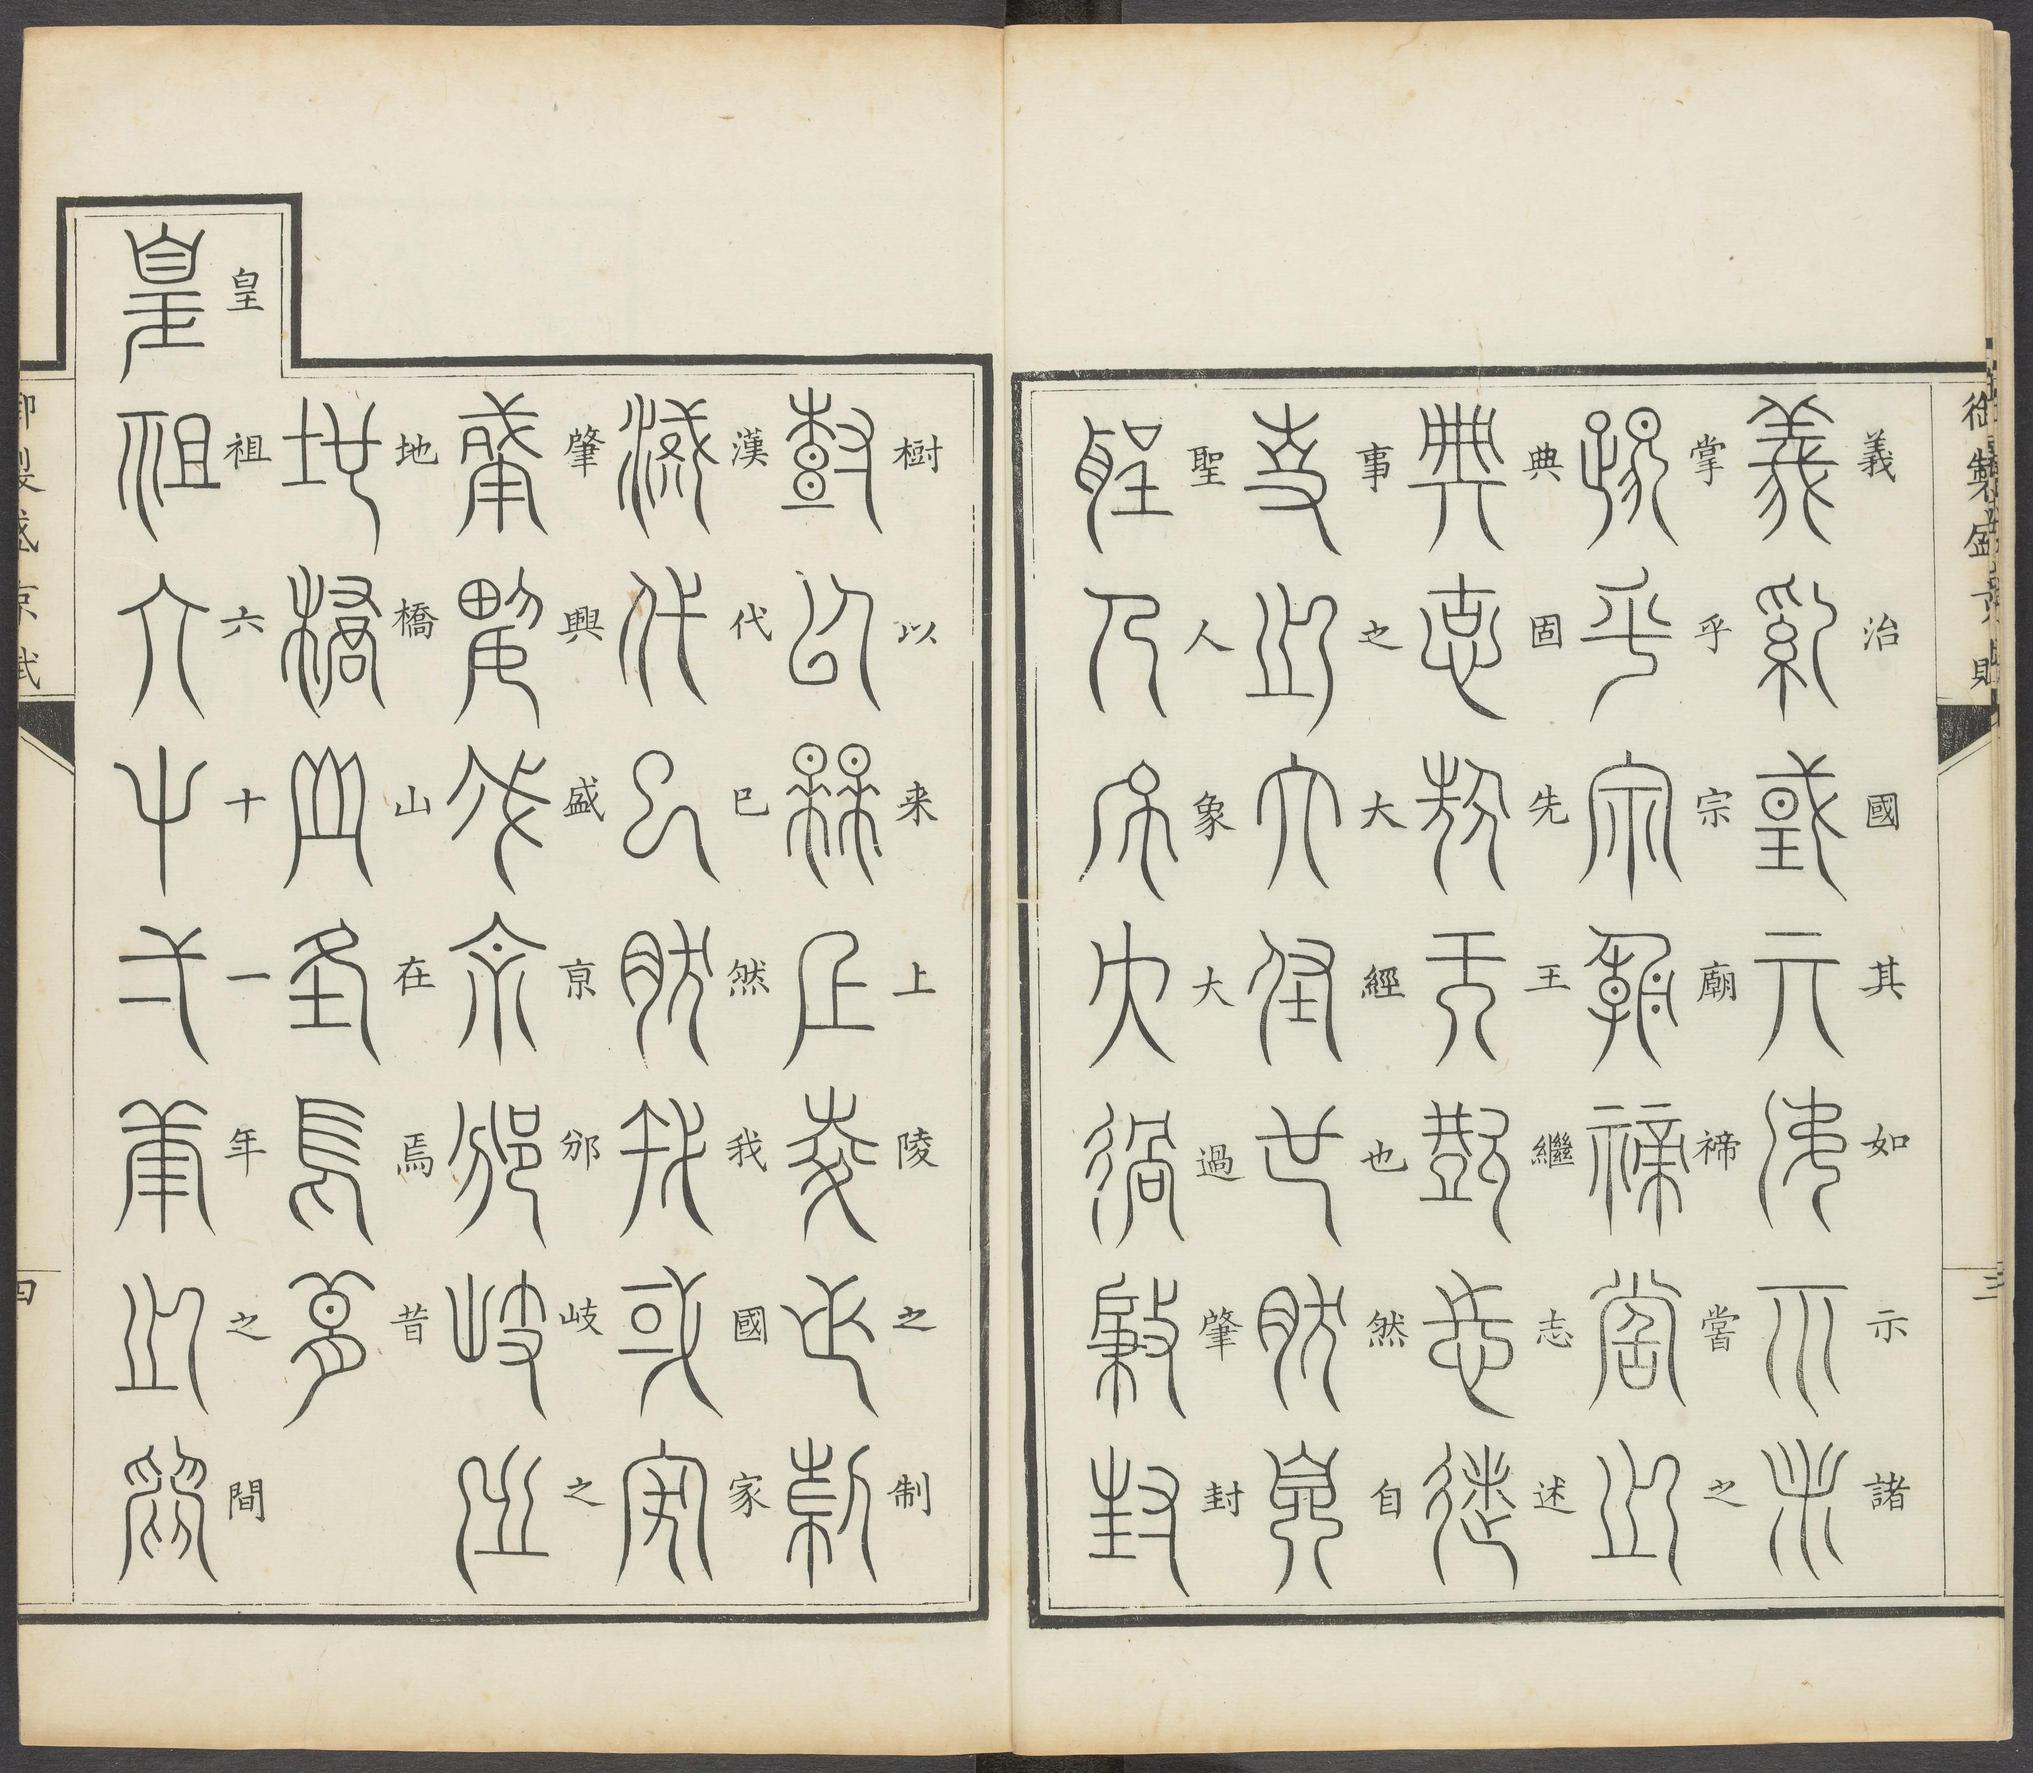 御製盛京賦
三
義治國其如示諸
掌乎宗廟禘嘗之
典固先王繼志述
事之大經也然自
聖人象大過肇封
樹以来上陵之制
漢代已然我國家
肇興盛京邠岐之
地橋山在焉昔
皇祖六十一年之間
御製盛京賦
四